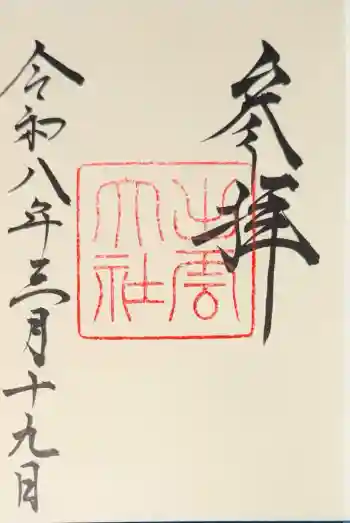 参拝
出雲
大社
令和八年三月十九日